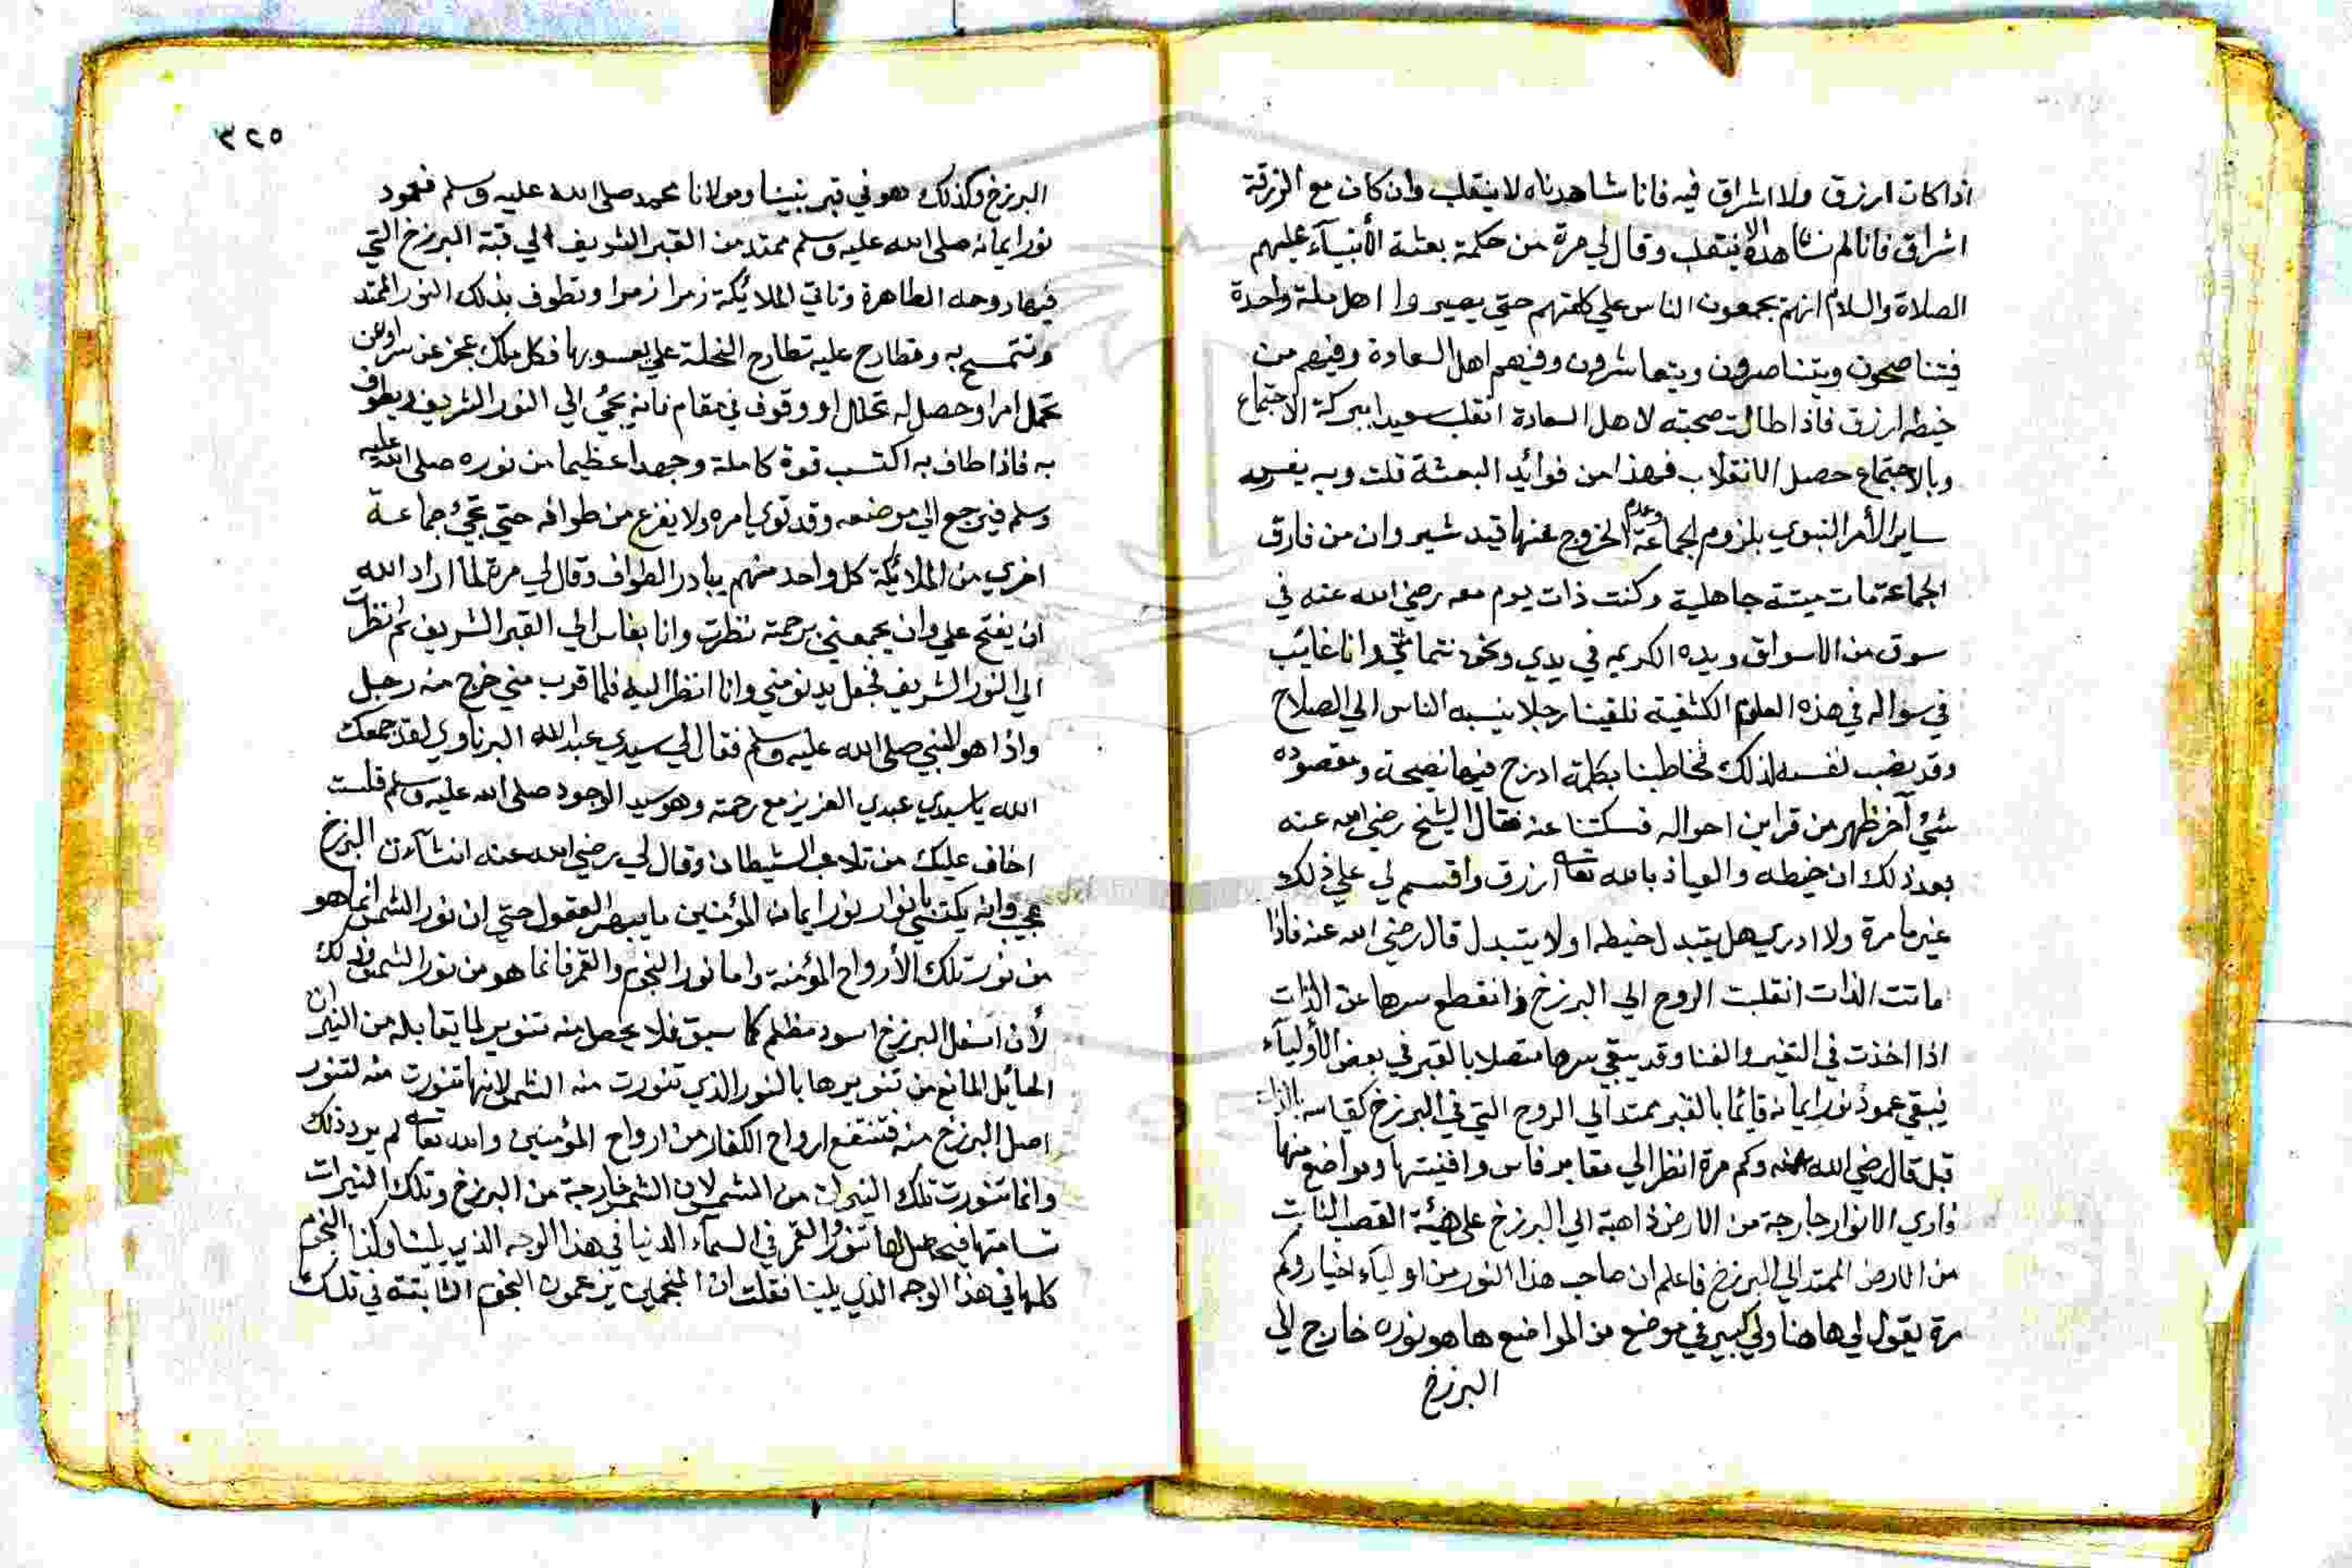 اذا كان ازرق ولا اشراق فيه فانا شاهدناه لا ينقلب وان كان مع الزرقة
اشراق فانا لم نشاهده الا ينتقلب وقال لي مرة من حكمة بعثة الأنبيآء عليهم
الصلاة والسلام انهم يجمعون الناس علي كلمتهم حتي يصيروا اهل ملة واحدة
فيتناصحون ويتناصرون ويتعاشرون وفيهم اهل السعادة وفيهم من
خيطه ازرق فاذا طالت صحبته لاهل السعادة انقلب سعيدا ببركة الاجتماع
وبالاجتماع حصل الانقلاب فهذا من فوائد البعثة قلت وبه يفسر
ساير الأمر النبوي بلزوم الجماعة وعدم الخروج عنها قيد شبر وان من فارق
الجماعة مات ميتة جاهلية وكنت ذات يوم معه رضي الله عنه في
سوق من الاسواق ويده الكريمه في يدي ونحن نتماشي وانا غايب
في سواله في هذه العلوم الكشفية فلقينا رجلا ينسبه الناس الي الصلاح
وقد نصب نفسه لذلك فخاطبنا بكلمة ادرج فيها نصيحة ومقصوده
شئ آخر ظهر من قراين احواله فسكتنا عنه فقال الشيخ رضي الله عنه
بعد ذلك ان خيطه والعياذ بالله تعا ازرق واقسم لي علي ذلك
غير ما مرة ولا ادري هل يتبدل خيطه او لا يتبدل قال رضي الله عنه فاذا
ماتت الذات انقلبت الروح الي البرزخ وانقطع سرها عن الذات
اذا اخذت في التغير والفنا وقد يبقي سرها متصلا بالقبر في بعض الأوليآء
فيبقي عمود نور ايمانه قائما بالقبر ممتدا الي الروح التي في البرزخ كقيامه بالذات
قبل قال رضي الله عنه وكم مرة انظر الي مقابر فاس وافنيتها ومواضع منها
فاري الانوار خارجة من الارض ذاهبة الي البرزخ علي هيئة القصب النابت
من الارض الممتد الي البرزخ فاعلم ان صاحب هذا النور من اوليآء اخيار وكم
مرة يقول لي هاهنا ولي كبير في موضع من المواضع ها هو نوره خارج الي
البرزخ
٣٢٥
البرزخ وكذلك هو في قبر نبينا ومولانا محمد صلي الله عليه وسلم فعمود
نور ايمانه صلي الله عليه وسلم ممتد من القبر الشريف الي قبة البرزخ التي
فيها روحه الطاهرة وتاتي الملائكة زمرا زمرا وتطوف بذلك النور الممتد
وتتمسح به وتطارح عليه تطارح النحلة علي يعسوبها فكل ملك عجز عن سر او عن
تحمل امر او حصل له كلال او وقوف في مقام فانه يجئ الي النور الشريف ويطوف
به فاذا طاف به اكتسب قوة كاملة وجهدا عظيما من نوره صلي الله عليه
وسلم فيرجع الي موضعه وقد قوي امره ولا يفرغ من طوافه حتي تجئ جماعة
اخري من الملائكة كل واحد منهم يبادر الطواف وقال لي مرة لما اراد الله
ان يفتح علي وان يجمعني برحمته نظرت وانا بفاس الي القبر الشريف ثم نظرت
الي النور الشريف فجعل يدنو مني وانا انظر اليه فلما قرب مني خرج منه رجل
واذا هو النبي صلي الله عليه وسلم فقال لي سيدي عبدالله البرناوي لقد جمعك
الله يا سيدي عبدي العزيز مع رحمته وهو سيد الوجود صلي الله عليه وسلم فلست
اخاف عليك من تلاعب الشيطان وقال لي رضي الله عنه ان شآن البرزخ
عجيب وانه يكتسي بانوار نور ايمان المؤمنين ما يبهر العقول حتي ان نور الشمس انما هو
من نور تلك الأرواح المؤمنة واما نور النجوم والقمر فانما هو من نور الشمس وذلك
لأن اسفل البرزخ اسود مظلم كما سبق فلا يحصل منه تنوير لما يقابله من النيرات
الحائل المانع من تنويرها بالنور الذي تنورت منه الشمس لانها تنورت منه لتنور
اصل البرزخ منه فتنتفع ارواح الكفار من ارواح المؤمنين والله تعا لم يرد ذلك
وانما تنورت تلك النيرات من الشمس لان الشمس خارجة من البرزخ وتلك النيرات
تسامتها فيحصل لها تنور القمر في السمآء الدنيا في هذا الوجه الذي يلينا وكذا النجوم
كلها في هذا الوجه الذي يلينا فقلت ان المنجمين يزعمون النجوم الثابتة في تلك